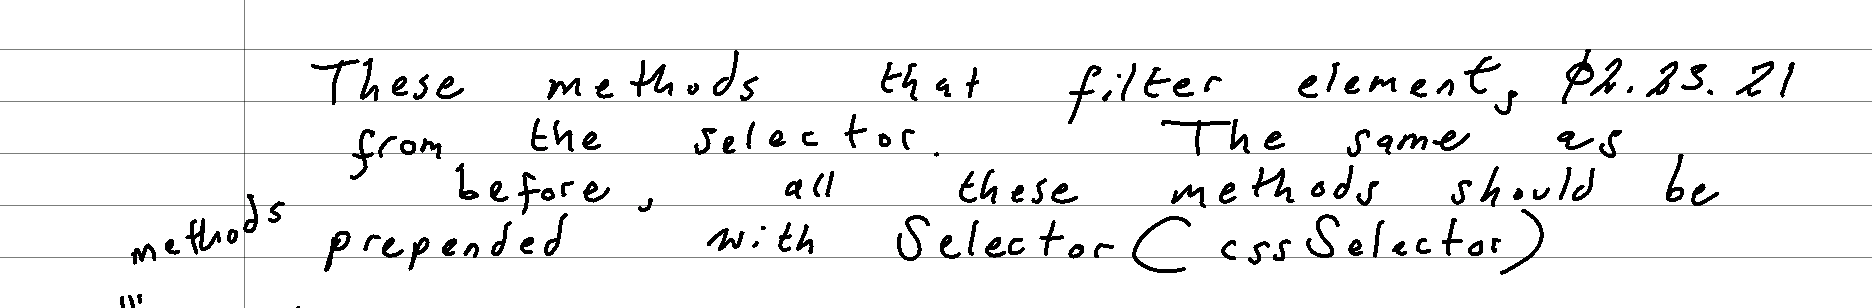 These methods that filter element, $2.23.21
from the selector. The same as
before, all these methods should be
methods prepended with Selector(cssSelector)